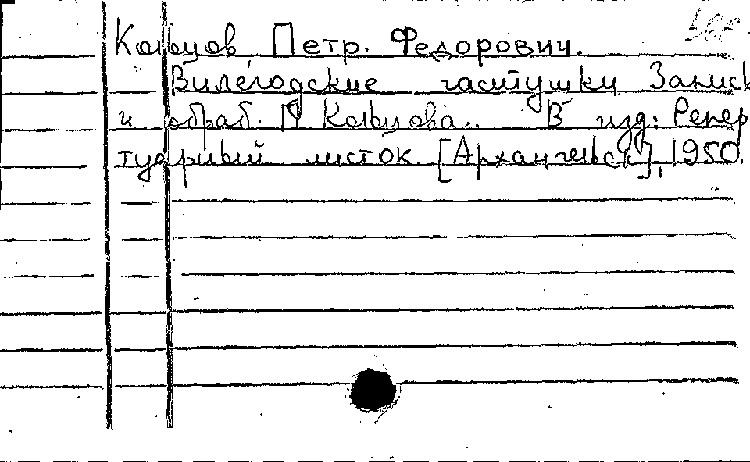 Кольцов Петр. Федорович.
Вилегодские частушки Запись
и обраб. П Кольцова.. В изд: Репер
туарный листок. [Архангельск], 1950.